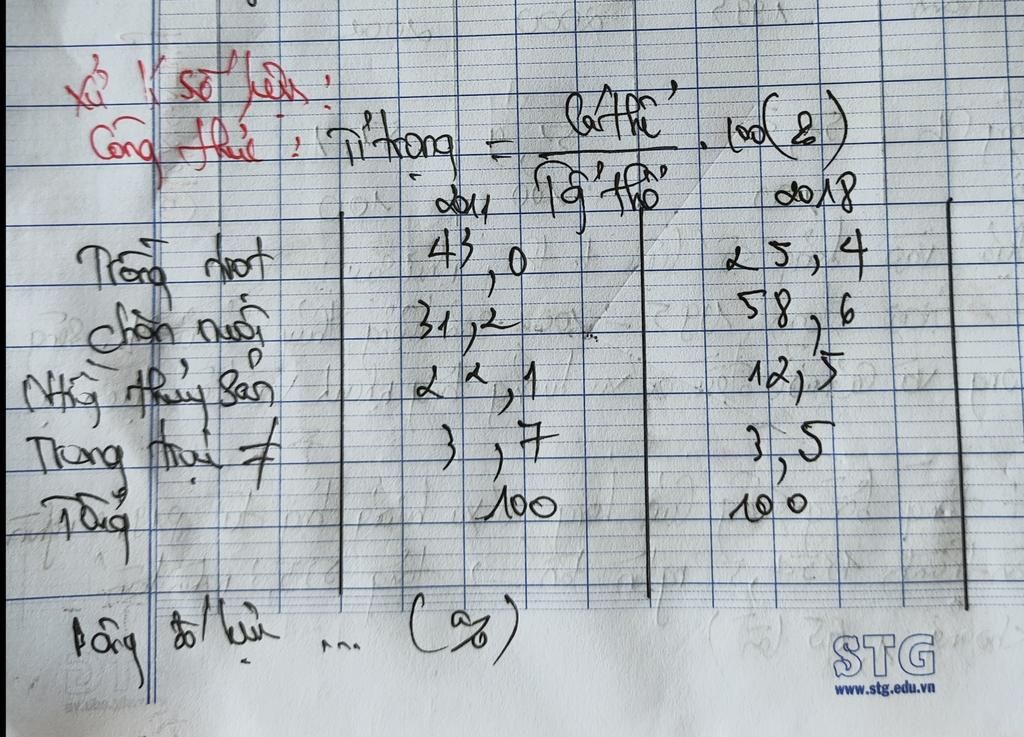 Xử lí số liệu :
Công thức : Tỉ trọng = Cá thể / Tg thể . 100 (%)
2011 2018
Trồng trọt 43,0 25,4
chăn nuôi 31,2 58,6
Nuôi thủy sản 22,1 12,5
Trang trại ≠ 3,7 3,5
Tổng 100 100
Bảng số liệu ... (%)
STG
www.stg.edu.vn